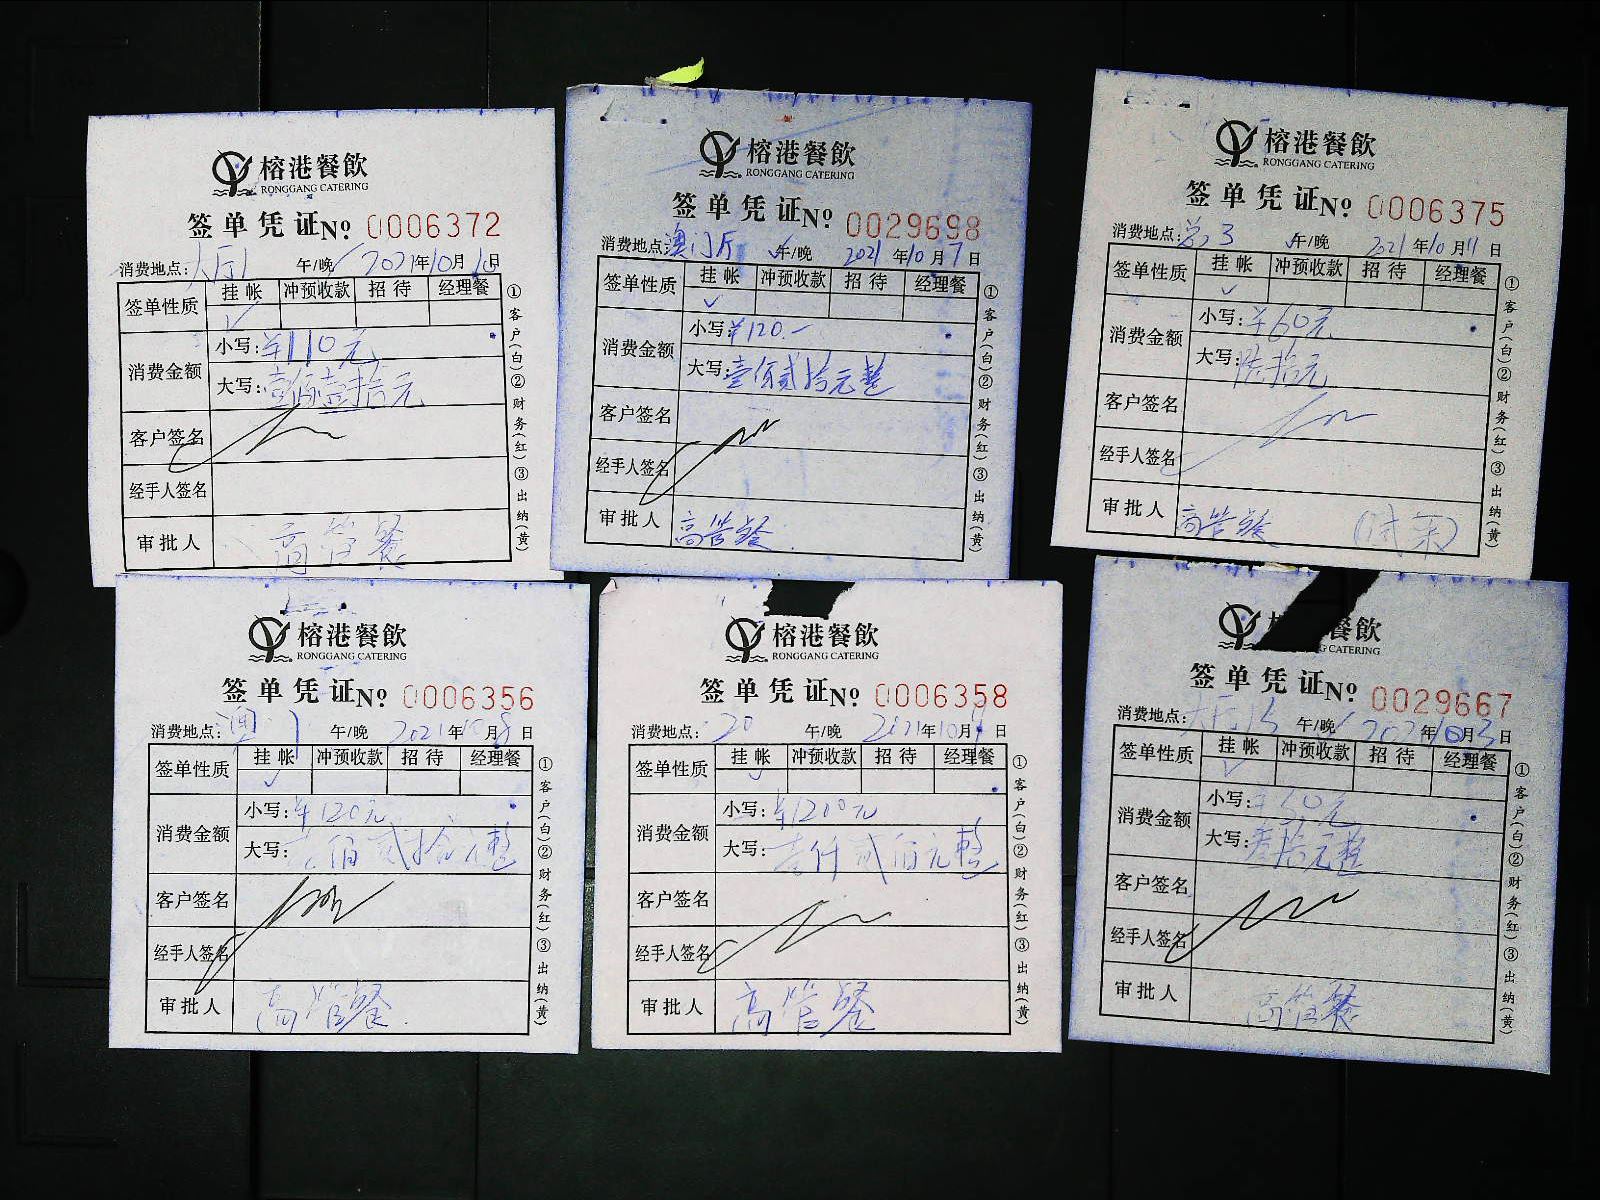 榕港餐飲
RONGGANG CATERING
签单凭证No 0006372
消费地点: 大厅1 午/晚 2021年10月10日
签单性质 挂帐 冲预收款 招待 经理餐
消费金额
小写: ¥110元
大写: 壹佰壹拾元
客户签名
经手人签名
审批人 高管餐
①客户(白)②财务(红)③出纳(黄)
榕港餐飲
RONGGANG CATERING
签单凭证No 0029698
消费地点: 澳门厅 午/晚 2021年10月7日
签单性质 挂帐 冲预收款 招待 经理餐
消费金额
小写: ¥120.-
大写: 壹佰贰拾元整
客户签名
经手人签名
审批人 高管餐.
①客户(白)②财务(红)③出纳(黄)
榕港餐飲
RONGGANG CATERING
签单凭证No 0006375
消费地点: 3 午/晚 2021年10月11日
签单性质 挂帐 冲预收款 招待 经理餐
消费金额
小写: ¥60元
大写: 陆拾元
客户签名
经手人签名
审批人 高管餐
①客户(白)②财务(红)③出纳(黄)
榕港餐飲
RONGGANG CATERING
签单凭证No 0006356
消费地点: 澳门 午/晚 2021年10月8日
签单性质 挂帐 冲预收款 招待 经理餐
消费金额
小写: ¥120元
大写: 壹佰贰拾元整
客户签名
经手人签名
审批人 高管餐.
①客户(白)②财务(红)③出纳(黄)
榕港餐飲
RONGGANG CATERING
签单凭证No 0006358
消费地点: 20 午/晚 2021年10月日
签单性质 挂帐 冲预收款 招待 经理餐
消费金额
小写: ¥1200元
大写: 壹仟贰佰元整
客户签名
经手人签名
审批人 高管餐
①客户(白)②财务(红)③出纳(黄)
餐飲
CATERING
签单凭证No 0029667
消费地点: 大厅 午/晚 2021年10月3日
签单性质 挂帐 冲预收款 招待 经理餐
消费金额
小写:
大写: 拾元整
客户签名
经手人签名
审批人 高管餐
①客户(白)②财务(红)③出纳(黄)